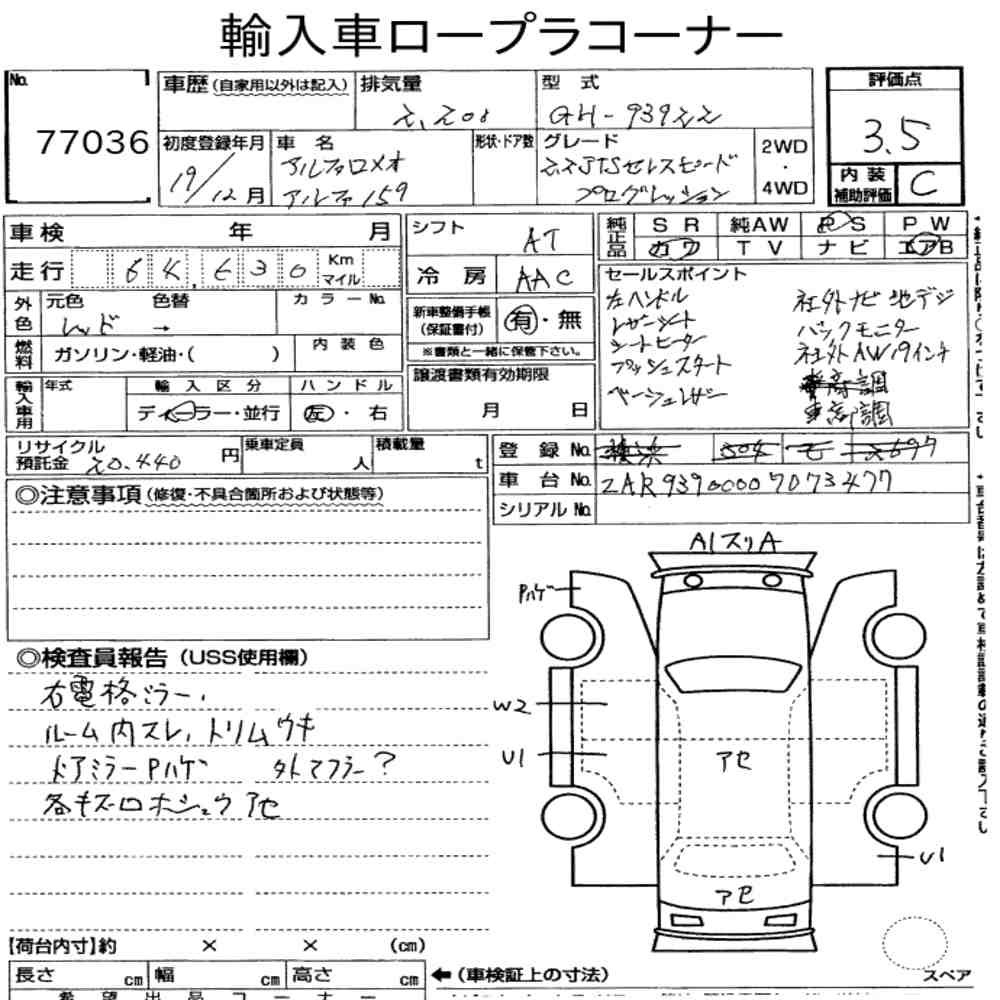 輸入車ロープラコーナー
No. 77036
車歴 (自家用以外は記入) 排気量 2,200 型式 GH-93922
初度登録年月 19/12月 車名 アルファロメオ アルファ159 形状・ドア数
グレード 2.2JTSセレスピード プログレッション
2WD・4WD
評価点 3.5
内装補助評価 C
車検 年 月
走行 64,630 Km マイル
外色 元色 レッド 色替 → カラーNo.
燃料 ガソリン・軽油・( ) 内装色
輸入車用 年式 輸入区分 ディーラー・並行 ハンドル 左・右
シフト AT
冷房 AAC
新車整備手帳(保証書付) 有・無
※書類と一緒に保管下さい。
譲渡書類有効期限 月 日
純正品 SR 純AW PS PW
カワ TV ナビ エアB
セールスポイント
左ハンドル 社外ナビ 地デジ
レザーシート バックモニター
シートヒーター 社外AW19インチ
プッシュスタート
ベージュレザー 車高調
リサイクル預託金 20.440円 乗車定員 人 積載量 t
登録No.
車台No. ZAR93900007073477
シリアルNo.
◎注意事項 (修復・不具合箇所および状態等)
◎検査員報告 (USS使用欄)
右電格ミラー、
ルーム内スレ、トリムウキ
ドアミラーPハゲ 外マフラー?
各キズ ホシュウ アセ
A1スリA
Pハゲ
W2
U1
アセ
U1
アセ
【荷台内寸】約 × × (cm)
長さ cm 幅 cm 高さ cm
←(車検証上の寸法)
スペア
希望出品コーナー